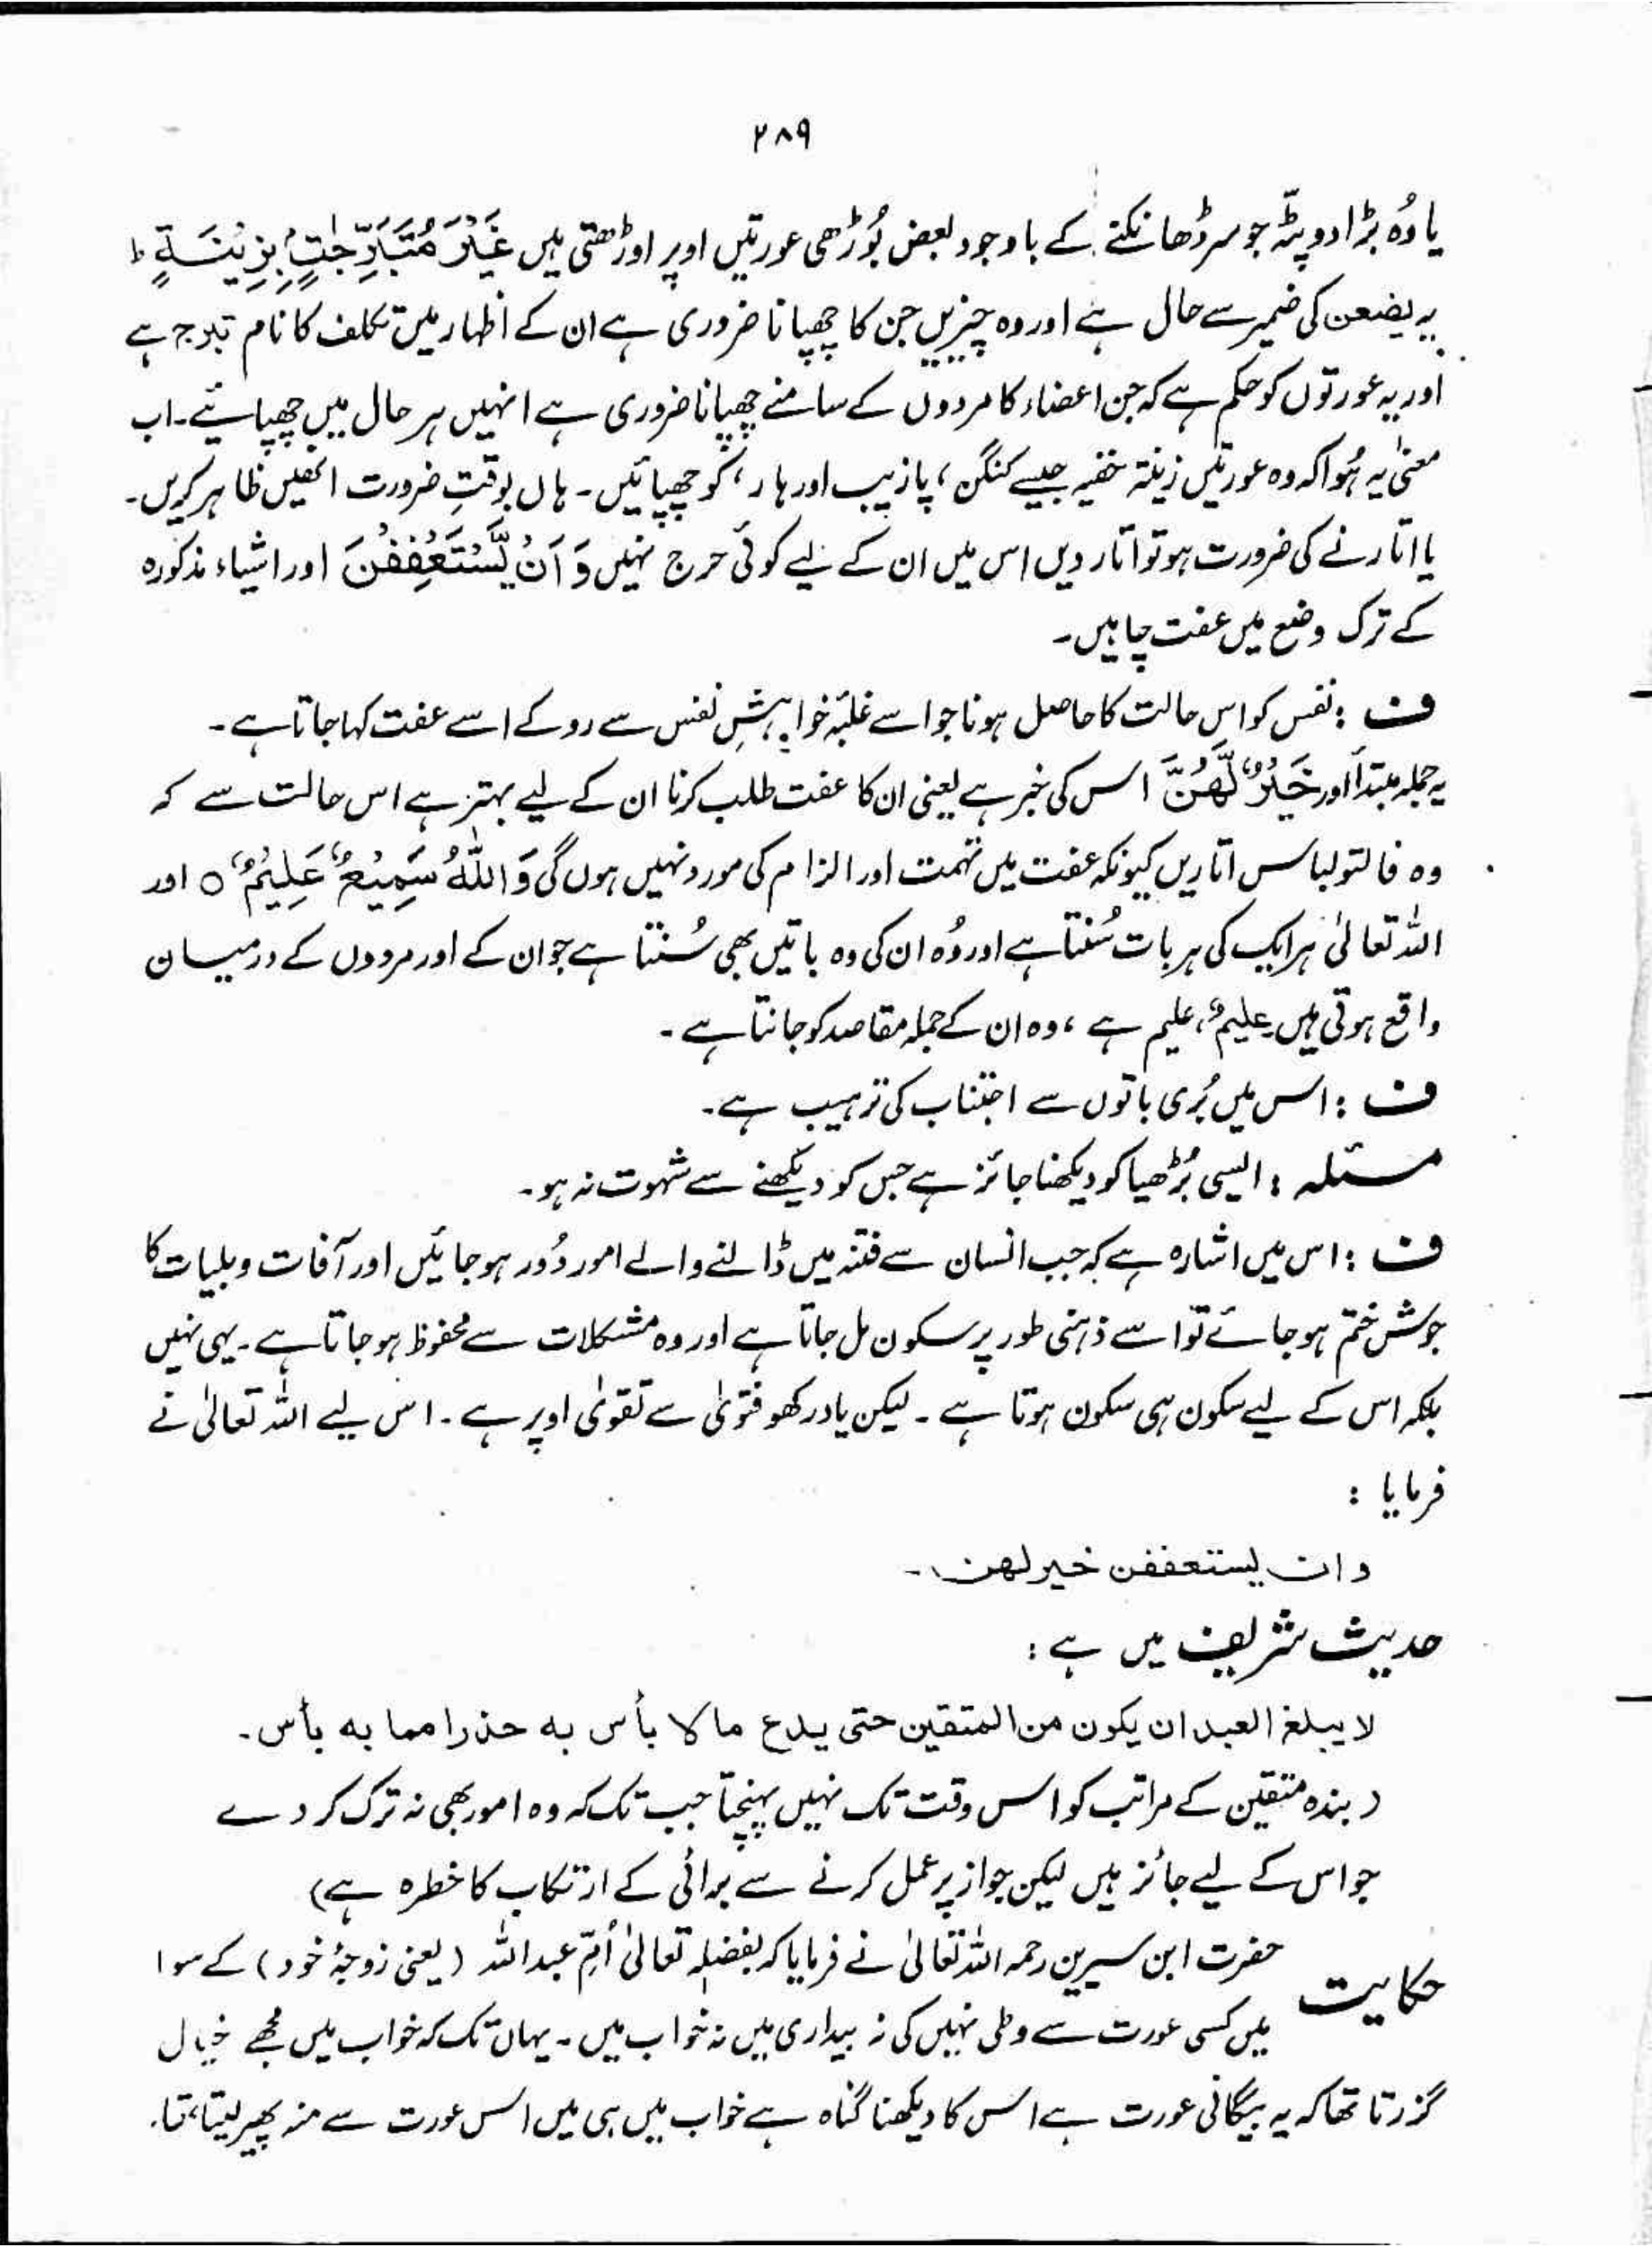 ۲۸۹
یا وُہ بڑا دوپٹہ جو سر ڈھانکنے کے باوجود بعض بُوڑھی عورتیں اوپر اوڑھتی ہیں غَیْرَ مُتَبَرِّجٰتٍۭ بِزِیْنَۃٍ ط
یہ یضعن کی ضمیر سے حال ہے اور وہ چیزیں جن کا چھپانا ضروری ہے ان کے اظہار میں تکلف کا نام تبرج ہے
اور یہ عورتوں کو حکم ہے کہ جن اعضاء کا مردوں کے سامنے چھپانا ضروری ہے انہیں ہر حال میں چھپائیے۔ اب
معنیٰ یہ ہُوا کہ وہ عورتیں زینۃ خفیہ جیسے کنگن، پازیب اور ہار، کو چھپائیں۔ ہاں بوقتِ ضرورت انھیں ظاہر کریں۔
یا اتارنے کی ضرورت ہو تو اتار دیں اس میں ان کے لیے کوئی حرج نہیں وَ اَنْ یَّسْتَعْفِفْنَ اور اشیاء مذکورہ
کے ترک وضع میں عفت چاہیں۔
ف : نفس کو اس حالت کا حاصل ہونا جو اسے غلبۂ خواہشِ نفس سے روکے اسے عفت کہا جاتا ہے۔
یہ جملہ مبتدأ اور خَیْرٌ لَّھُنَّ اس کی خبر ہے یعنی ان کا عفت طلب کرنا ان کے لیے بہتر ہے اس حالت سے کہ
وہ فالتو لباس اتاریں کیونکہ عفت میں تہمت اور الزام کی مورد نہیں ہوں گی وَ اللّٰہُ سَمِیْعٌ عَلِیْمٌ ○ اور
اللہ تعالیٰ ہر ایک کی ہر بات سُنتا ہے اور وُہ ان کی وہ باتیں بھی سُنتا ہے جو ان کے اور مردوں کے درمیان
واقع ہوتی ہیں۔ علیمٌ، علیم ہے، وہ ان کے جملہ مقاصد کو جانتا ہے۔
ف : اس میں بُری باتوں سے اجتناب کی ترہیب ہے۔
مسئلہ : ایسی بُڑھیا کو دیکھنا جائز ہے جس کو دیکھنے سے شہوت نہ ہو۔
ف : اس میں اشارہ ہے کہ جب انسان سے فتنہ میں ڈالنے والے امور دُور ہو جائیں اور آفات و بلیات کا
جوش ختم ہو جائے تو اسے ذہنی طور پر سکون مل جاتا ہے اور وہ مشکلات سے محفوظ ہو جاتا ہے۔ یہی نہیں
بلکہ اس کے لیے سکون ہی سکون ہوتا ہے۔ لیکن یاد رکھو فتویٰ سے تقویٰ اوپر ہے۔ اس لیے اللہ تعالیٰ نے
فرمایا :
وان یستعففن خیر لھن۔
حدیث شریف میں ہے :
لا یبلغ العبد ان یکون من المتقین حتی یدع ما لا بأس بہ حذرا مما بہ بأس۔
(بندہ متقین کے مراتب کو اس وقت تک نہیں پہنچتا جب تک کہ وہ امور بھی نہ ترک کر دے
جو اس کے لیے جائز ہیں لیکن جواز پر عمل کرنے سے برائی کے ارتکاب کا خطرہ ہے)
حکایت حضرت ابن سیرین رحمہ اللہ تعالیٰ نے فرمایا کہ بفضلہ تعالیٰ اُمّ عبداللہ (یعنی زوجۂ خود) کے سوا
میں کسی عورت سے وطی نہیں کی نہ بیداری میں نہ خواب میں۔ یہاں تک کہ خواب میں مجھے خیال
گزرتا تھا کہ یہ بیگانی عورت ہے اس کا دیکھنا گناہ ہے خواب میں ہی میں اس عورت سے منہ پھیر لیتا تھا۔